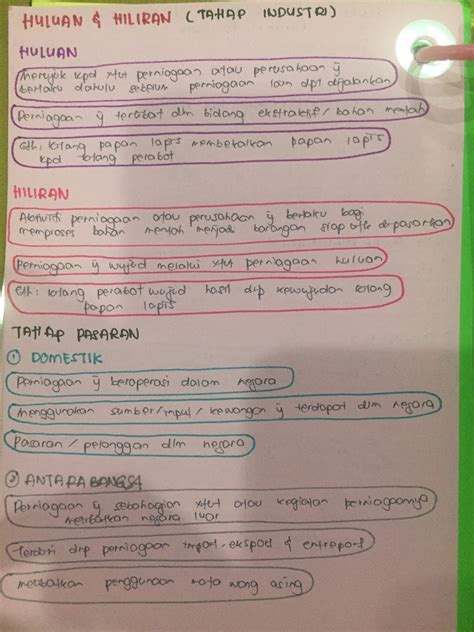 HULUAN & HILIRAN (TAHAP INDUSTRI)
HULUAN
Merujuk kpd xtvt perniagaan atau perusahaan yg
berlaku dahulu sebelum perniagaan lain dpt dijalankan
Perniagaan yg terlibat dlm bidang ekstraktif / bahan mentah
Cth: kilang papan lapis membekalkan papan lapis
kpd kilang perabot
HILIRAN
Aktiviti perniagaan atau perusahaan yg berlaku bagi
memproses bahan mentah menjadi barangan siap utk dipasarkan
Perniagaan yg wujud melalui xtvt perniagaan huluan
Cth: kilang perabot wujud hasil drp kewujudan kilang
papan lapis
TAHAP PASARAN
① DOMESTIK
Perniagaan yg beroperasi dalam negara
Menggunakan sumber/input/kewangan yg terdapat dlm negara
Pasaran / pelanggan dlm negara
② ANTARABANGSA
Perniagaan yg sebahagian xtvt atau kegiatan perniagaannya
melibatkan negara luar
Terdiri drp perniagaan import-eksport & entreport
Melibatkan penggunaan mata wang asing